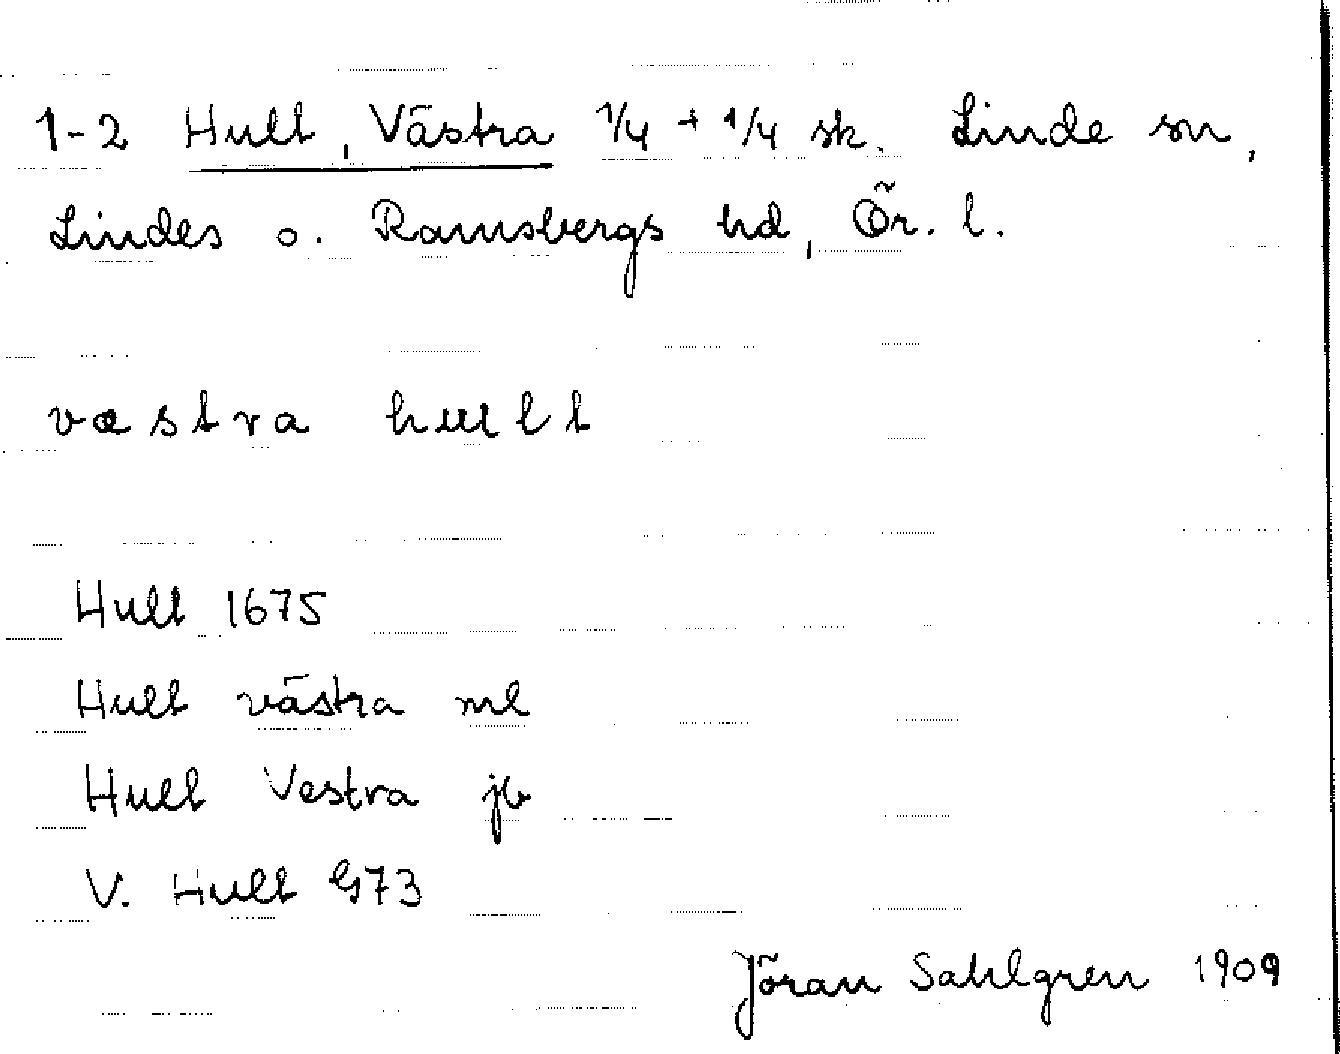 1-2 Hult, Västra 1/4 + 1/4 sk. Linde sn,
Lindes o. Ramsbergs hd, Ör. l.
væstra hullt
Hult 1675
Hult västra ml
Hult Vestra jb
V. Hult G73
Jöran Sahlgren 1909